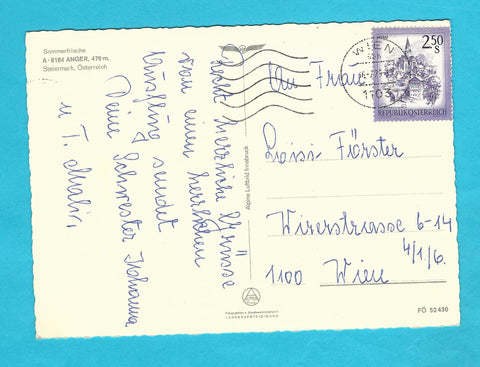 Sommerfrische
A-8184 ANGER, 479 m,
Steiermark, Österreich
Recht herzliche Grüsse
von einem herrlichen
Ausflug sendet
Deine Schwester Johanna
u T.
Alpine Luftbild Innsbruck
WIEN
1103
2.50 S
REPUBLIK ÖSTERREICH
An Frau
Loisi Förster
Wirerstrasse 6-14
4/1/6.
1100 Wien
LANDESVERTEIDIGUNG
FÖ 52430